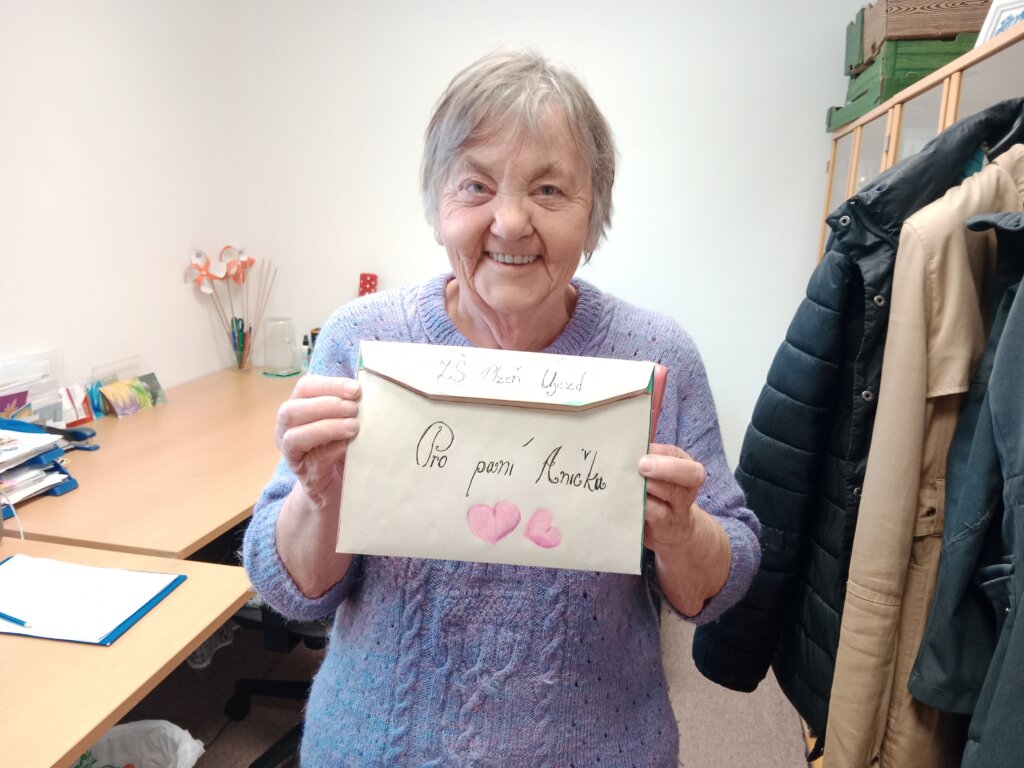 ZŠ Plzeň Újezd
Pro paní Aničku